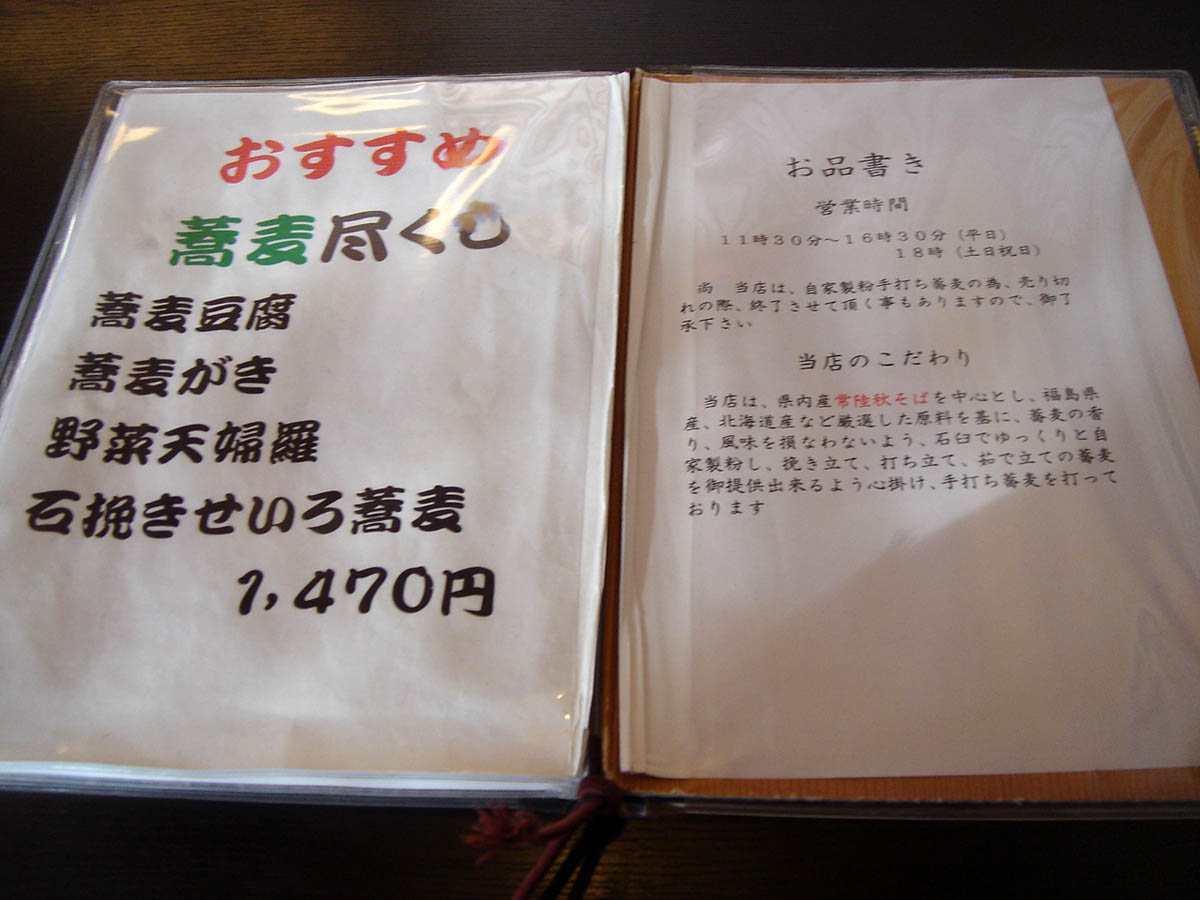 おすすめ
蕎麦尽くし
蕎麦豆腐
蕎麦がき
野菜天婦羅
石挽きせいろ蕎麦
1,470円
お品書き
営業時間
11時30分～16時30分(平日)
18時(土日祝日)
尚 当店は、自家製粉手打ち蕎麦の為、売り切
れの際、終了させて頂く事もありますので、御了
承下さい
当店のこだわり
当店は、県内産常陸秋そばを中心とし、福島県
産、北海道産など厳選した原料を基に、蕎麦の香
り、風味を損なわないよう、石臼でゆっくりと自
家製粉し、挽き立て、打ち立て、茹で立ての蕎麦
を御提供出来るよう心掛け、手打ち蕎麦を打って
おります